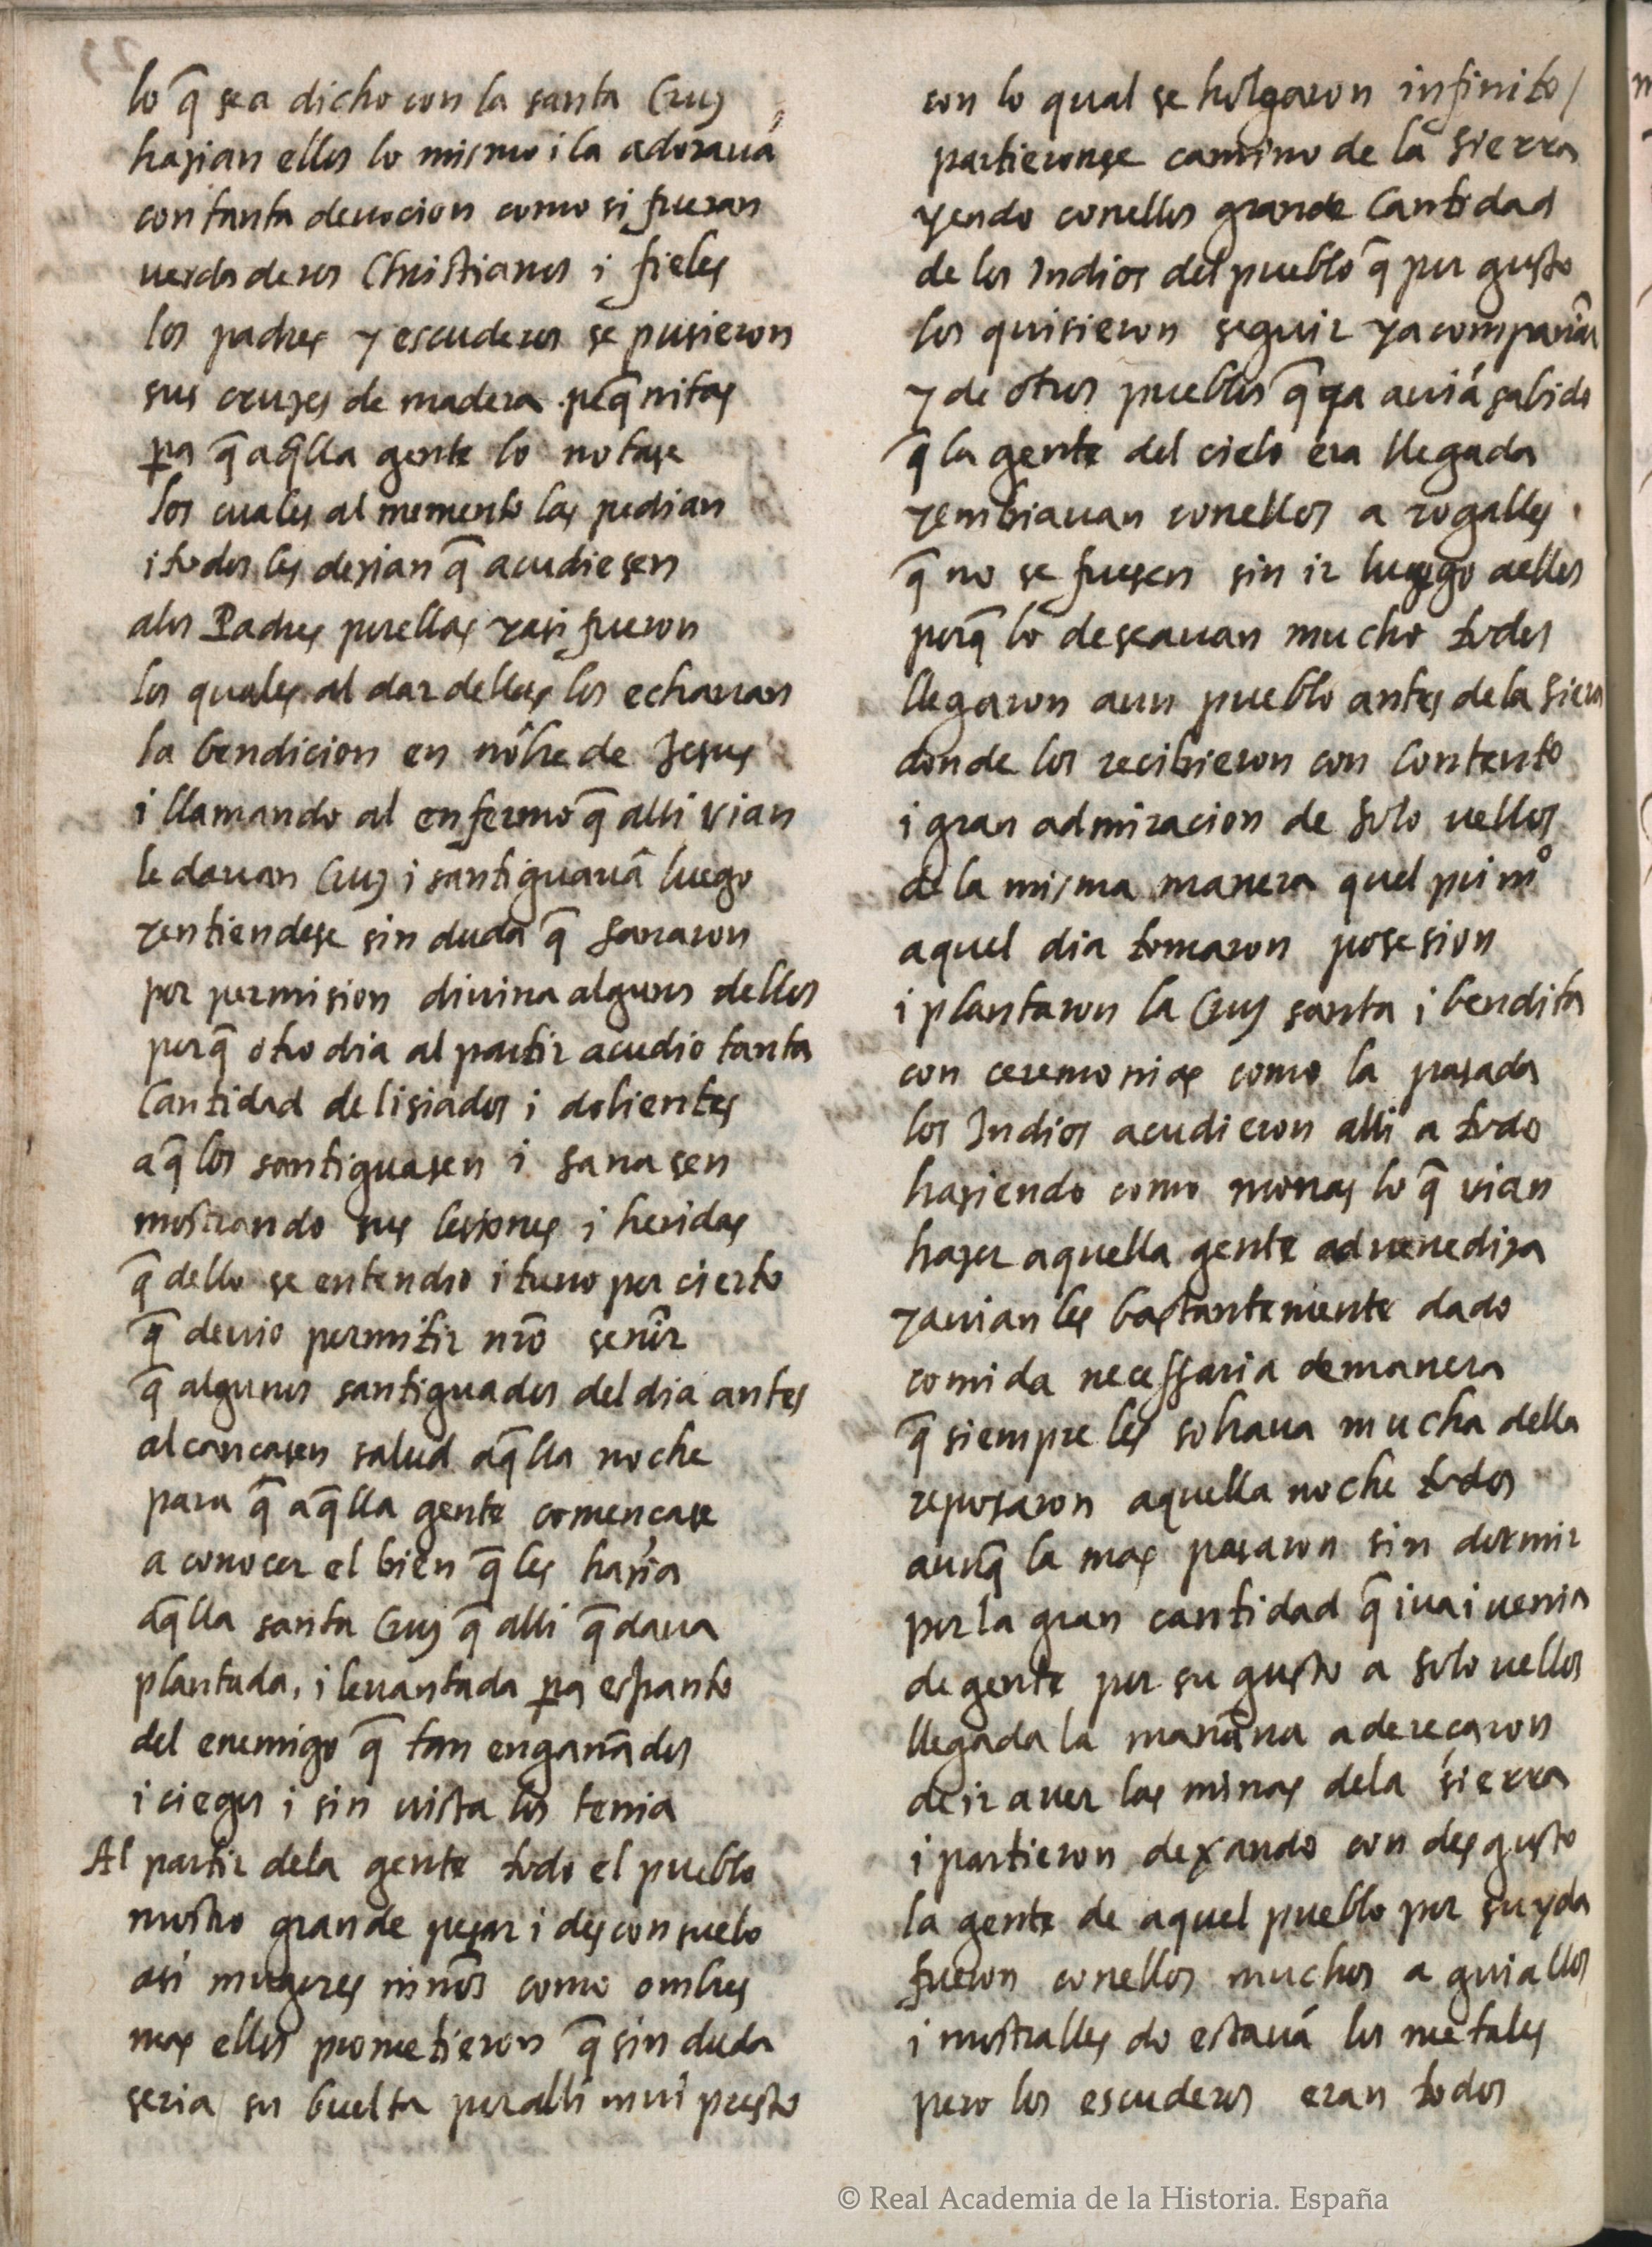 lo q̃ se a dicho con la santa Cruz
hazian ellos lo mismo i la adorauã
con tanta deuocion como si fueran
uerdaderos Christianos i fieles
los padres y escuderos se pusieron
sus cruzes de madera peq̃nitas
pa q̃ aq̃lla gente lo notase
los cuales al memento las pedian
i todos les dezian q̃ acudiesen
a los Padres por ellas y asi fueron
los quales al dar dellas los echauan
la bendicion en nõbre de Jesus
i llamando al enfermo q̃ alli vian
le dauan Cruz i santiguauã luego
y entiendese sin duda q̃ sanaron
por permision diuina algunos dellos
porq̃ otro dia al partir acudio tanta
Cantidad de lisiados i dolientes
a q̃ los santiguasen i sanasen
mostrando sus lesiones i heridas
q̃ dello se entendio i tuuo por cierto
q̃ deuio permitir nr̃o señor
q̃ algunos santiguados del dia antes
alcancasen salud aq̃lla noche
para q̃ aq̃lla gente comencase
a conocer el bien q̃ les hazia
aq̃lla santa Cruz q̃ alli q̃daua
plantada, i leuantada pa espanto
del enemigo q̃ tan engañados
i ciegos i sin uista los tenia
Al partir dela gente todo el pueblo
mostro grande pesar i desconsuelo
asi mugeres niños como ombres
mas ellos prometieron q̃ sin duda
seria su buelta por alli mui presto
con lo qual se holgaron infinito /
partieronse camino de la sierra
yendo con ellos grande Cantidad
de los Indios del pueblo q̃ por gusto
los quisieron seguir y acompañar
y de otros pueblos q̃ ya auiã sabido
q̃ la gente del cielo era llegada
y embiauan con ellos a rogalles
q̃ no se fuesen sin ir luego a ellos
porq̃ lo deseauan mucho todos
llegaron a un pueblo antes de la sierra
donde los recibieron con Contento
i gran admiracion de solo uellos
de la misma manera quel primº
aquel dia tomaron posesion
i plantaron la Cruz santa i bendita
con ceremonias como la pasada
los Indios acudieron alli a todo
haziendo como monas lo q̃ vian
hazer aquella gente aduenediza
y auian les bastantemente dado
comida necessaria de manera
q̃ siempre les sobraua mucha della
reposaron aquella noche todos
aunq̃ la mas pasaron sin dormir
por la gran cantidad q̃ iua i uenia
de gente por su gusto a solo uellos
llegada la mañana aderecaron
de ir a uer las minas dela sierra
i partieron dexando con desgusto
la gente de aquel pueblo por su yda
fueron con ellos muchos a guiallos
i mostralles do estauã los metales
pero los escuderos eran todos
© Real Academia de la Historia. España